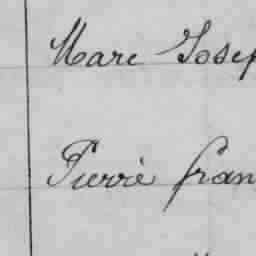 Marc Josep
Pierre fran